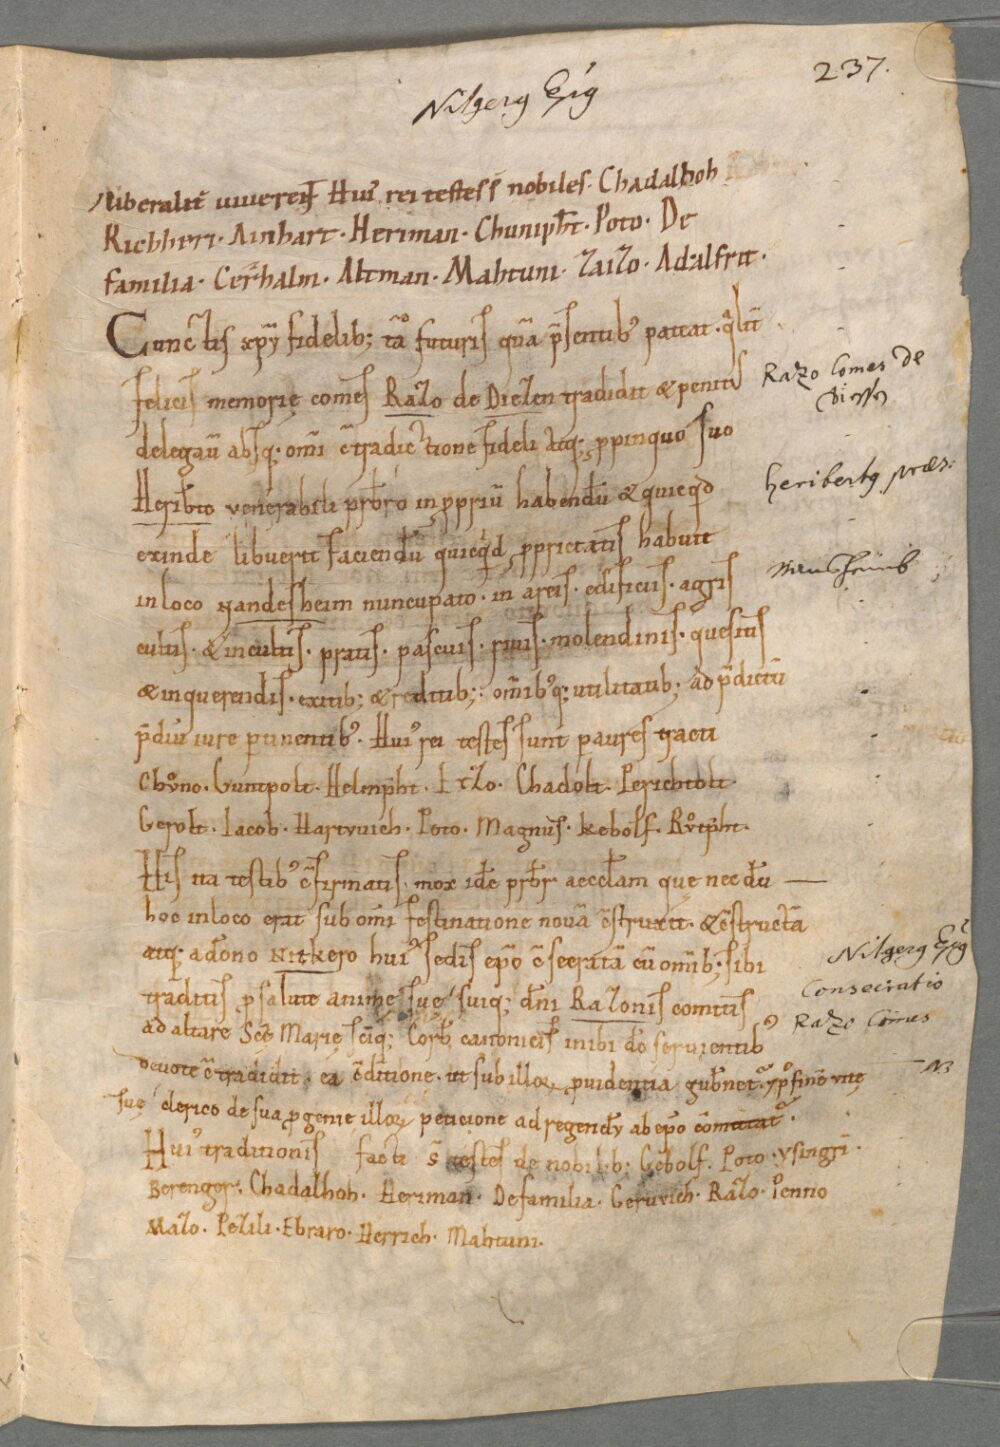 237.
Nitgerg Epig
liberalit̄ uiuerent Hui' rei testes s̄ nobiles. Chadalhoh
Richheri. Ainhart. Heriman. Chunip̄ht. Poto. De
familia. Gerhalm. Altman. Mahtuni. Zaizo. Adalfrit.
Cunctis xp̄i fidelib; tā futuris quā p̄sentib' pateat. qͣlit̄
felicis memorię comes Razo de Diezen tradidit & penit'
delegau̅ absq; om̄i c̄tradictione fideli atq; ppinquo suo
Razo Comes de
Diessen
Herib̄to venerabili prb̄ro in ppriū habendū & quicqd
heribertg præs:
exinde libuerit faciendū quicqd pprietatis habuit
in loco Nandesheim nuncupato. in areis. edificiis. agris
cultis. & incultis. pratis. pascuis. siluis. molendinis. quesitis
& inquerendis. exitib; & reditib; om̄ib'q; utilitatib; ad p̄dictū
p̄diū iure ptinentib'. Hui' rei testes sunt p aures tracti
Chůno. Guntpolt. Helmp̄ht. Etzo. Chadolt. Perichtolt.
Gerolt. Iacob. Hartvuich. Poto. Magnus. Kebolf. Růtp̄ht.
His ita testib' c̄firmatis. mox idē prb̄r aeccl̄am que nec dū
hoc in loco erat sub om̄i festinatione nouā c̄struxit. & c̄structā
atq; a dōno Nitkero hui' sedis ep̄o c̄secratā cū om̄ib; sibi
Nitgerg Epig
Consecratio
traditis p salute animę suę suiq; dn̄i Razonis comitis
Razo Comes
ad altare Scē Marię sciq; Corb̄. canonicis inibi dō seruientib'
deuote c̄tradidit. ea c̄ditione. ut sub illoꝝ puidentia gub̄net᷑.
suę clerico de sua pgenie illoꝝ peticione ad regendū ab ep̄o
Hui' traditionis facti s̄ testes de nobilib; Gebolf. Poto. ysingri.
Berenger. Chadalhoh. Heriman. De familia. Geruvich. Razo. Penno
Mazo. Pezili. Ebraro. Herrich. Mahtuni.